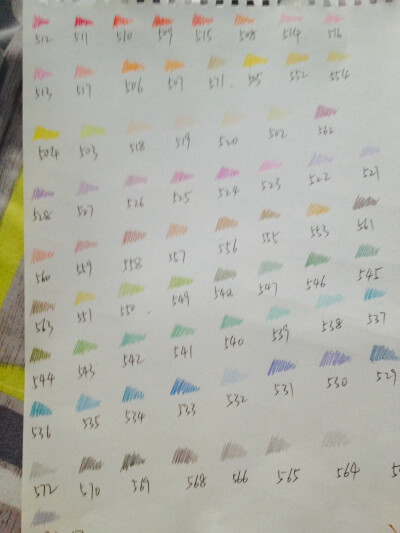 512 511 510 509 515 508 514 516
513 517 506 507 571 505 552 554
504 503 518 519 520 502 562
528 527 526 525 524 523 522 521
560 559 558 557 556 555 553 561
563 551 550 549 548 547 546 545
544 543 542 541 540 539 538 537
536 535 534 533 532 531 530 529
572 570 569 568 566 565 564